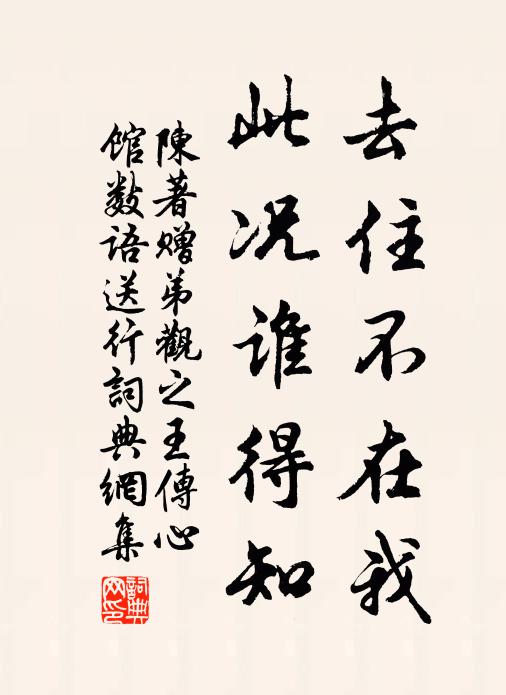 去住不在我
此况谁得知
陳著赠弟觀之王傳心
館数語送行詞典網集
詞典网印